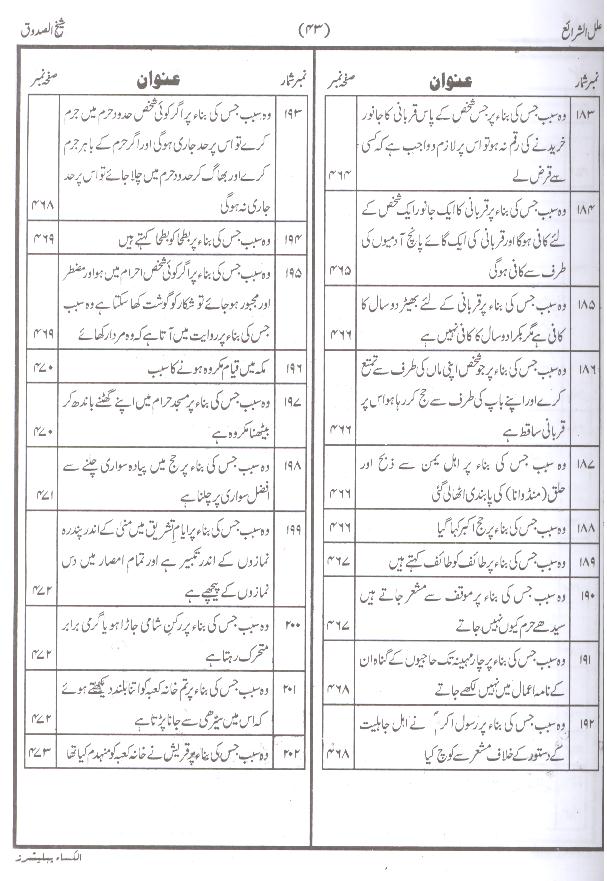 علل الشرائع (۴۳) شیخ الصدوق
نمبر شمار عنوان صفحہ نمبر
۱۸۳ وہ سبب جس کی بناء پر جس شخص کے پاس قربانی کا جانور
خریدنے کی رقم نہ ہو تو اس پر لازم و واجب ہے کہ کسی
سے قرض لے ۴۶۴
۱۸۴ وہ سبب جس کی بناء پر قربانی کا ایک جانور ایک شخص کے
لئے کافی ہوگا اور قربانی کی ایک گائے پانچ آدمیوں کی
طرف سے کافی ہوگی ۴۶۵
۱۸۵ وہ سبب جس کی بناء پر قربانی کے لئے بھیڑ دو سال کا
کافی ہے مگر بکرا دو سال کا کافی نہیں ہے ۴۶۶
۱۸۶ وہ سبب جس کی بناء پر جو شخص اپنی ماں کی طرف سے تمتع
کرے اور اپنے باپ کی طرف سے حج کر رہا ہو اس پر
قربانی ساقط ہے ۴۶۶
۱۸۷ وہ سبب جس کی بناء پر اہل یمن سے ذبح اور
حلق (منڈوانا) کی پابندی اٹھالی گئی ۴۶۶
۱۸۸ وہ سبب جس کی بناء پر حج اکبر کہا گیا ۴۶۶
۱۸۹ وہ سبب جس کی بناء پر طائف کو طائف کہتے ہیں ۴۶۷
۱۹۰ وہ سبب جس کی بناء پر موقف سے مشعر جاتے ہیں
سیدھے حرم کیوں نہیں جاتے ۴۶۷
۱۹۱ وہ سبب جس کی بناء پر چار مہینہ تک حاجیوں کے گناہ ان
کے نامہ اعمال میں نہیں لکھے جاتے ۴۶۸
۱۹۲ وہ سبب جس کی بناء پر رسول اکرمؐ نے اہل جاہلیت
کے دستور کے خلاف مشعر سے کوچ کیا ۴۶۸
نمبر شمار عنوان صفحہ نمبر
۱۹۳ وہ سبب جس کی بناء پر اگر کوئی شخص حدود حرم میں جرم
کرے تو اس پر حد جاری ہوگی اور اگر حرم کے باہر جرم
کرے اور بھاگ کر حدود حرم میں چلا جائے تو اس پر حد
جاری نہ ہوگی ۴۶۸
۱۹۴ وہ سبب جس کی بناء پر بطحا کو بطحا کہتے ہیں ۴۶۹
۱۹۵ وہ سبب جس کی بناء پر اگر کوئی شخص احرام میں ہو اور مضطر
اور مجبور ہو جائے تو شکار کو گوشت کھا سکتا ہے وہ سبب
جس کی بناء پر روایت میں آتا ہے کہ وہ مردار کھائے ۴۶۹
۱۹۶ مکہ میں قیام مکروہ ہونے کا سبب ۴۷۰
۱۹۷ وہ سبب جس کی بناء پر مسجد حرام میں اپنے گھٹنے باندھ کر
بیٹھنا مکروہ ہے ۴۷۰
۱۹۸ وہ سبب جس کی بناء پر حج میں پیادہ سواری چلنے سے
افضل سواری پر چلنا ہے ۴۷۱
۱۹۹ وہ سبب جس کی بناء پر ایام تشریق میں منیٰ کے اندر پندرہ
نمازوں کے اندر تکبیر ہے اور تمام امصار میں دس
نمازوں کے پیچھے ہے ۴۷۲
۲۰۰ وہ سبب جس کی بناء پر رکن شامی جاڑا ہو یا گرمی برابر
متحرک رہتا ہے ۴۷۲
۲۰۱ وہ سبب جس کی بناء پر تم خانہ کعبہ کو اتنا بلند دیکھتے ہوئے
کہ اس میں سیڑھی سے جانا پڑتا ہے ۴۷۲
۲۰۲ وہ سبب جس کی بناء پر قریش نے خانہ کعبہ کو منہدم کیا تھا ۴۷۳
الکساء پبلیشرز